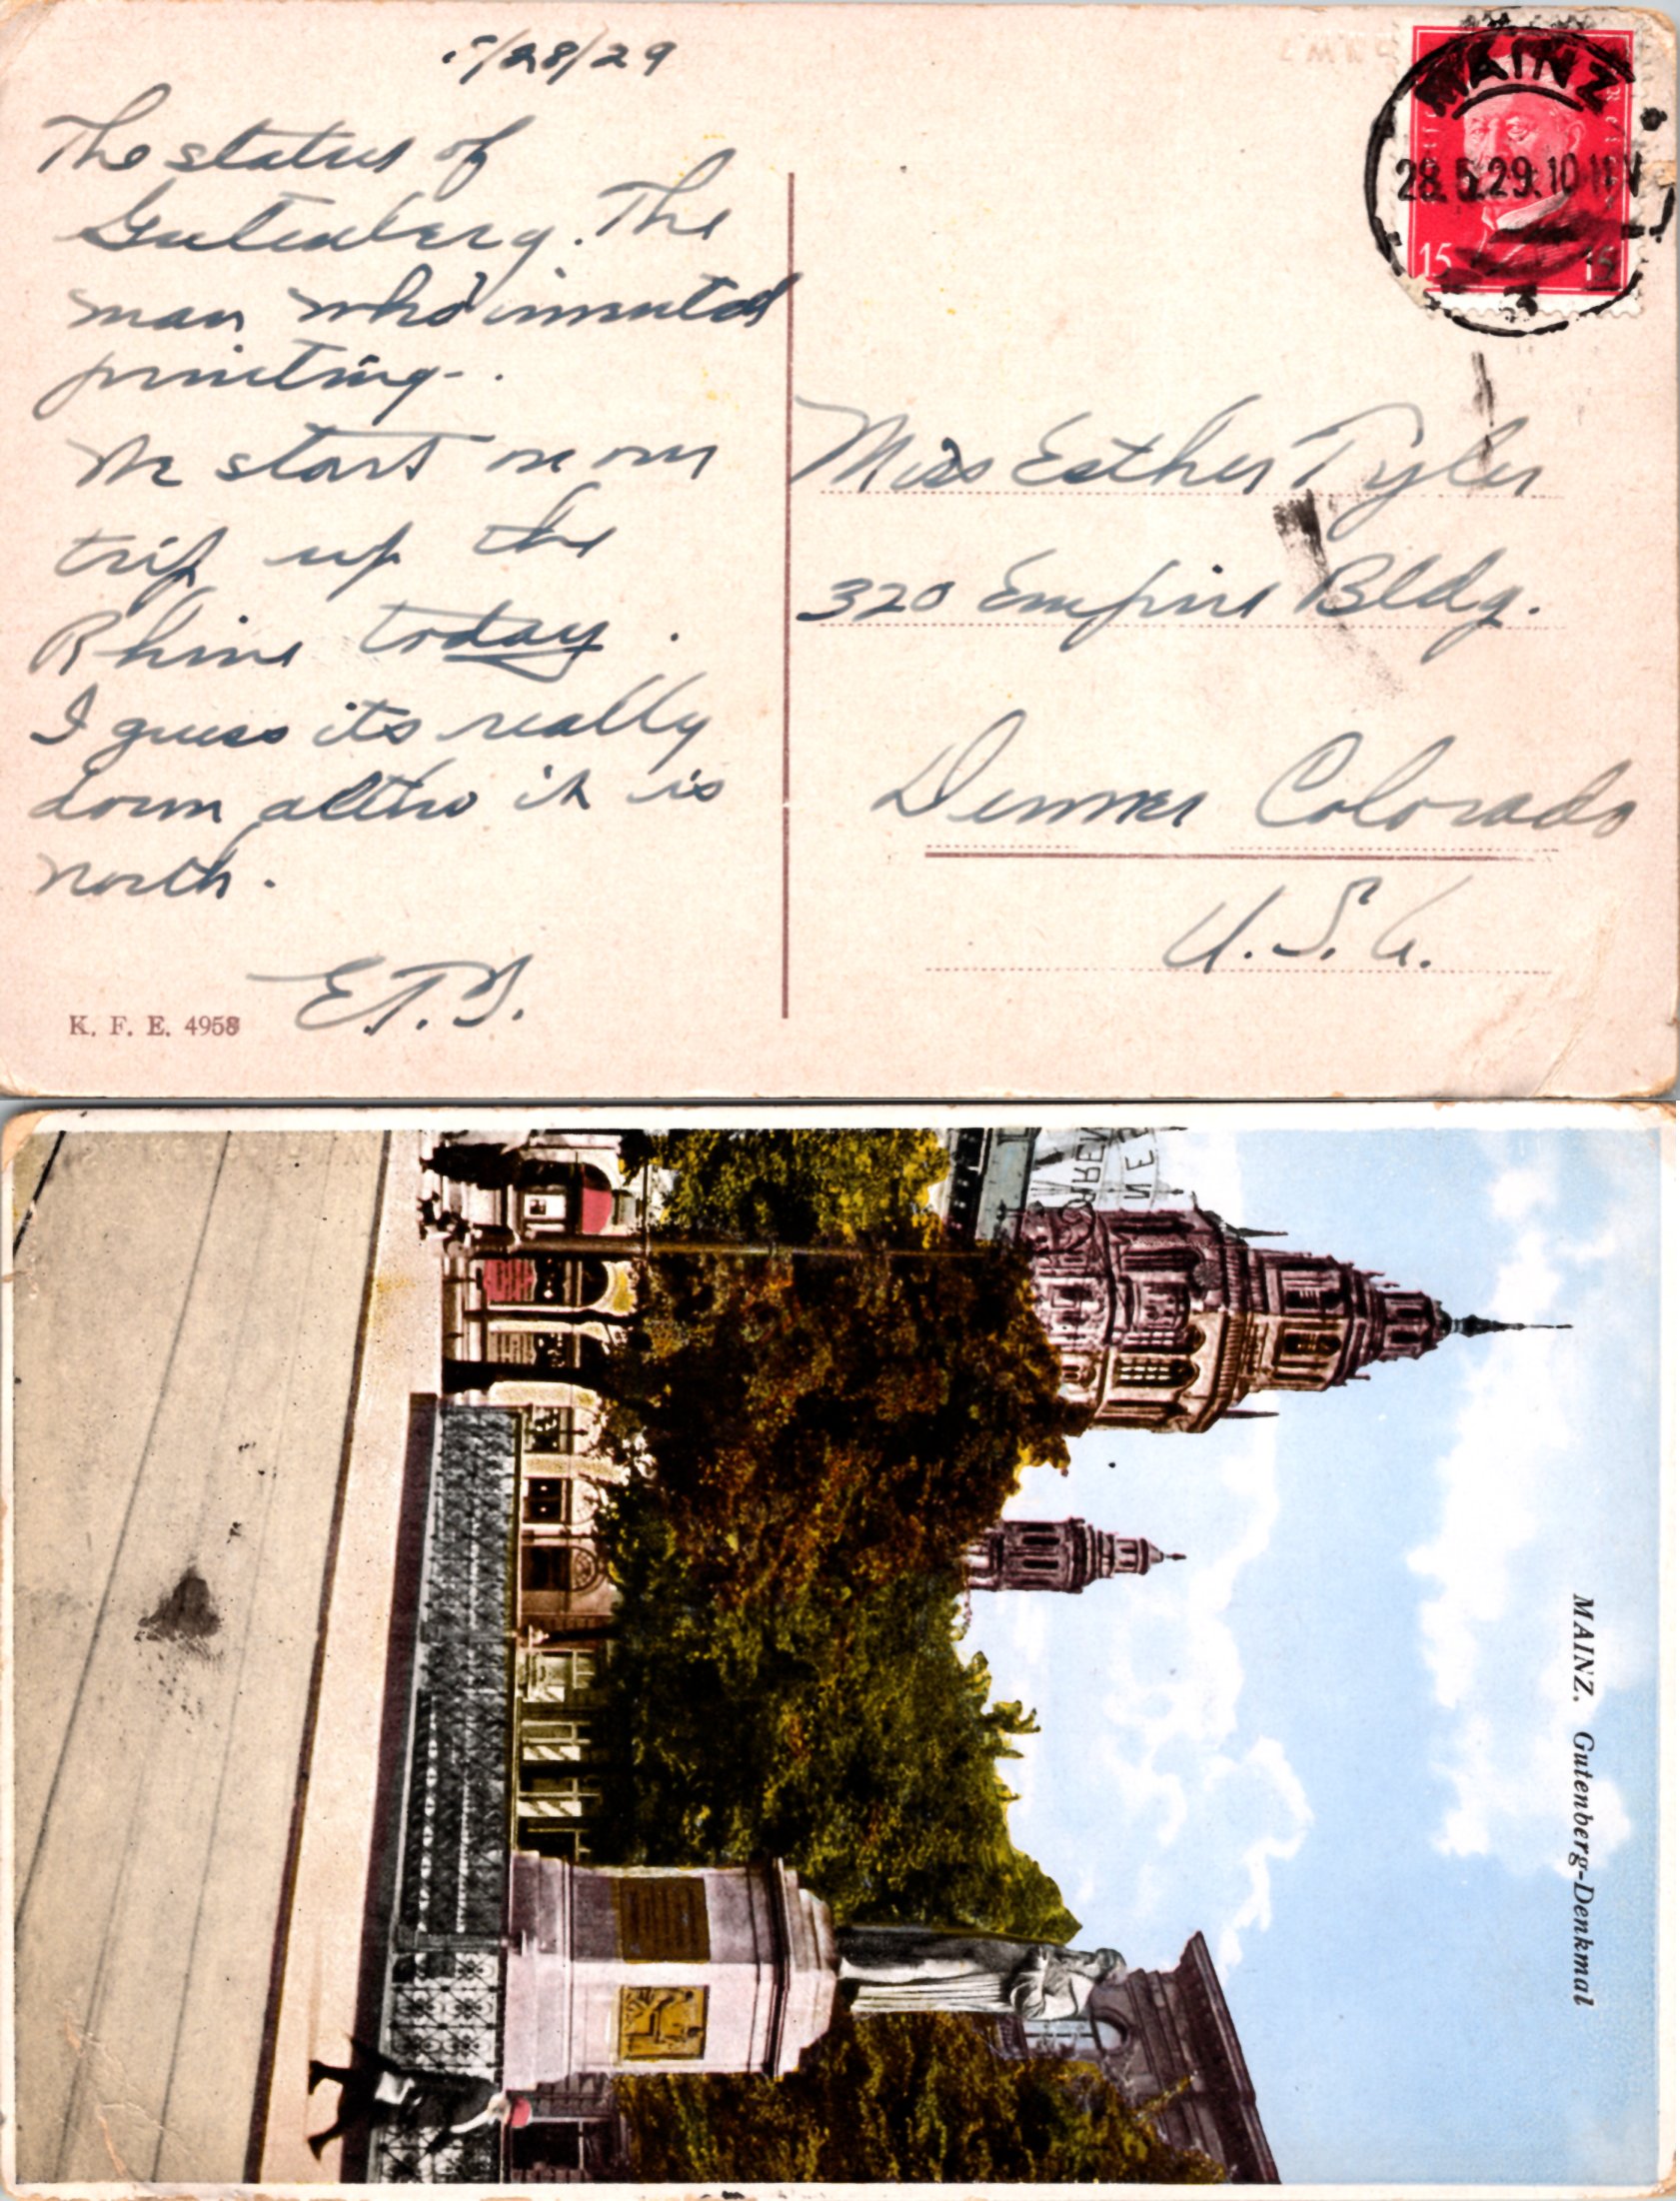 5/28/29
The status of
Gutenberg. The
man who invented
printing.
We start on our
trip up the
Rhine today.
I guess its really
down altho it is
north.
E.T.
K. F. E. 4958
MAINZ
28.5.29.10 11 V
15 15
Miss Esther Tyler
320 Empire Bldg.
Denver Colorado
U.S.A.
MAINZ. Gutenberg-Denkmal